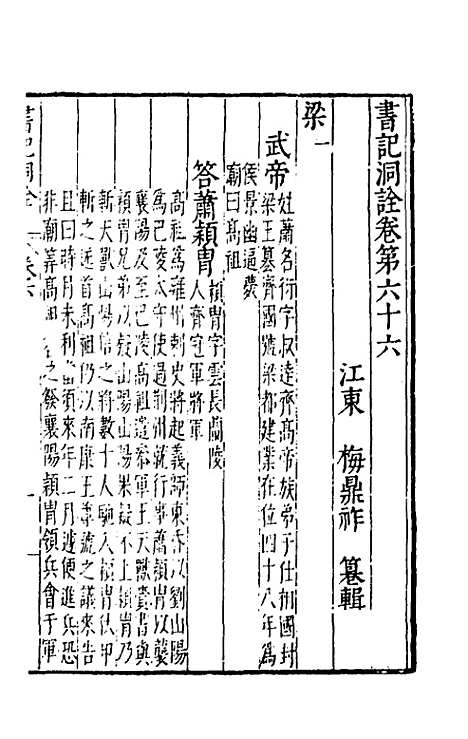 書記洞詮卷第六十六
江東 梅鼎祚 纂輯
梁一
武帝
姓蕭名衍字叔達齊髙帝族弟子仕相國封
梁王篡齊國號梁都建業在位四十八年爲
侯景幽逼薨
廟曰髙祖
答蕭穎胄
穎胄字雲長蘭陵
人齊冠軍將軍
髙祖爲雍州刺史將起義師東昏以劉山陽
爲巴陵太守使過荆州就行事蕭穎胄以襲
襄陽及至巴陵髙祖遣叅軍王天獸齎書與
穎胄兄弟以疑山陽山陽果疑不上穎胄乃
斬天獸山陽信之將數十人馳入穎胄伏甲
斬之送首髙祖仍以南康王尊號之議來告
且曰時月未利當須來年二月遽便進兵恐
非廟筭髙祖之發襄陽穎胄領兵會于軍
書記洞詮 卷六 一